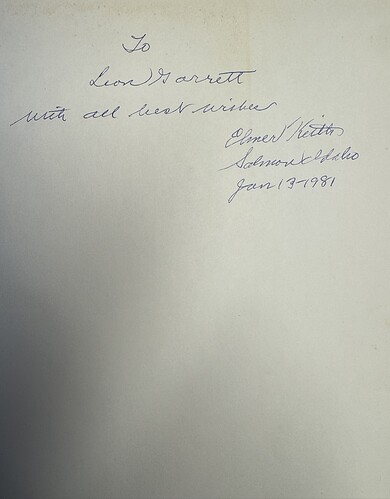 To
Leon Garrett
with all best wishes
Elmer Keith
Salmon Idaho
Jan 13-1981